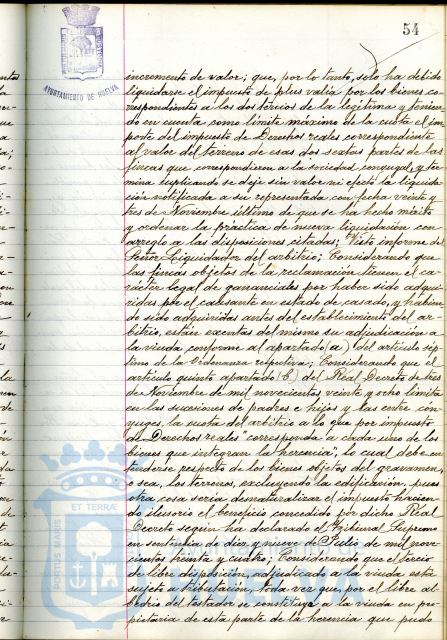 54
AYUNTAMIENTO DE HUELVA
incremento de valor; que, por lo tanto, solo ha debido
liquidarse el impuesto de plus valia por los bienes co-
rrespondientes a los dos tercios de la legitima y tenien-
do en cuenta como limite máximo de la cuota el im-
porte del impuesto de Derechos reales correspondiente
al valor del tercero de esas dos sextas partes de las
fincas que correspondieren a la sociedad conyugal, y ter-
mina suplicando se deje sin valor ni efecto la liquida-
ción notificada a su representada con fecha veinte y
tres de Noviembre último de que se ha hecho mérito
y ordenar la práctica de nueva liquidación con
arreglo a las disposiciones citadas; Visto informe del
Señor Liquidador del arbitrio; Considerando que
las fincas objetos de la reclamación tienen el ca-
rácter legal de gananciales por haber sido adqui-
ridas por el causante en estado de casado, y habien-
do sido adquiridas antes del establecimiento del ar-
bitrio, están exentas del mismo su adjudicación a
la viuda, conforme al apartado (a) del artículo sép-
timo de la Ordenanza respectiva; Considerando que el
artículo quinto apartado (b) del Real Decreto de tres
de Noviembre de mil novecientos veinte y ocho limita
en las sucesiones de padres e hijos y las entre cón-
yuges, la cuota del arbitrio a lo que por impuesto
de Derechos reales corresponda a cada uno de los
bienes que integran la herencia, lo cual debe en-
tenderse respecto de los bienes objetos del gravamen,
o sea, los terrenos, excluyendo la edificación, pues
otra cosa seria desnaturalizar el impuesto hacien-
do ilusorio el beneficio concedido por dicho Real
Decreto según ha declarado el Tribunal Supremo
en sentencia de diez y nueve de Julio de mil nove-
cientos treinta y cuatro; Considerando que el tercio
de libre disposición, adjudicado a la viuda está
sujeto a tributación, toda vez que, por el libre al-
bedrio del testador se constituye a la viuda en pro-
pietaria de esta parte de la herencia que pudo
PORTUS MARIS ET TERRAE
Ayuntamiento de